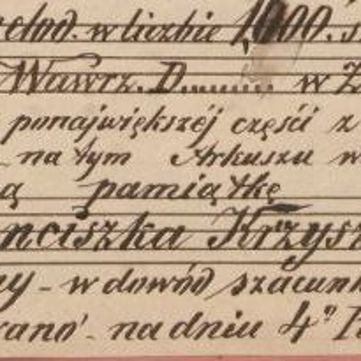 elod. w liczbie 1,000.
Wawrz. D......... w Z
ponajwiększéj części z
na tym Arkuszu w
ą pamiątkę
nciszka Krzysz
ny - w dowód szacunk
ano' - na dniu 4º